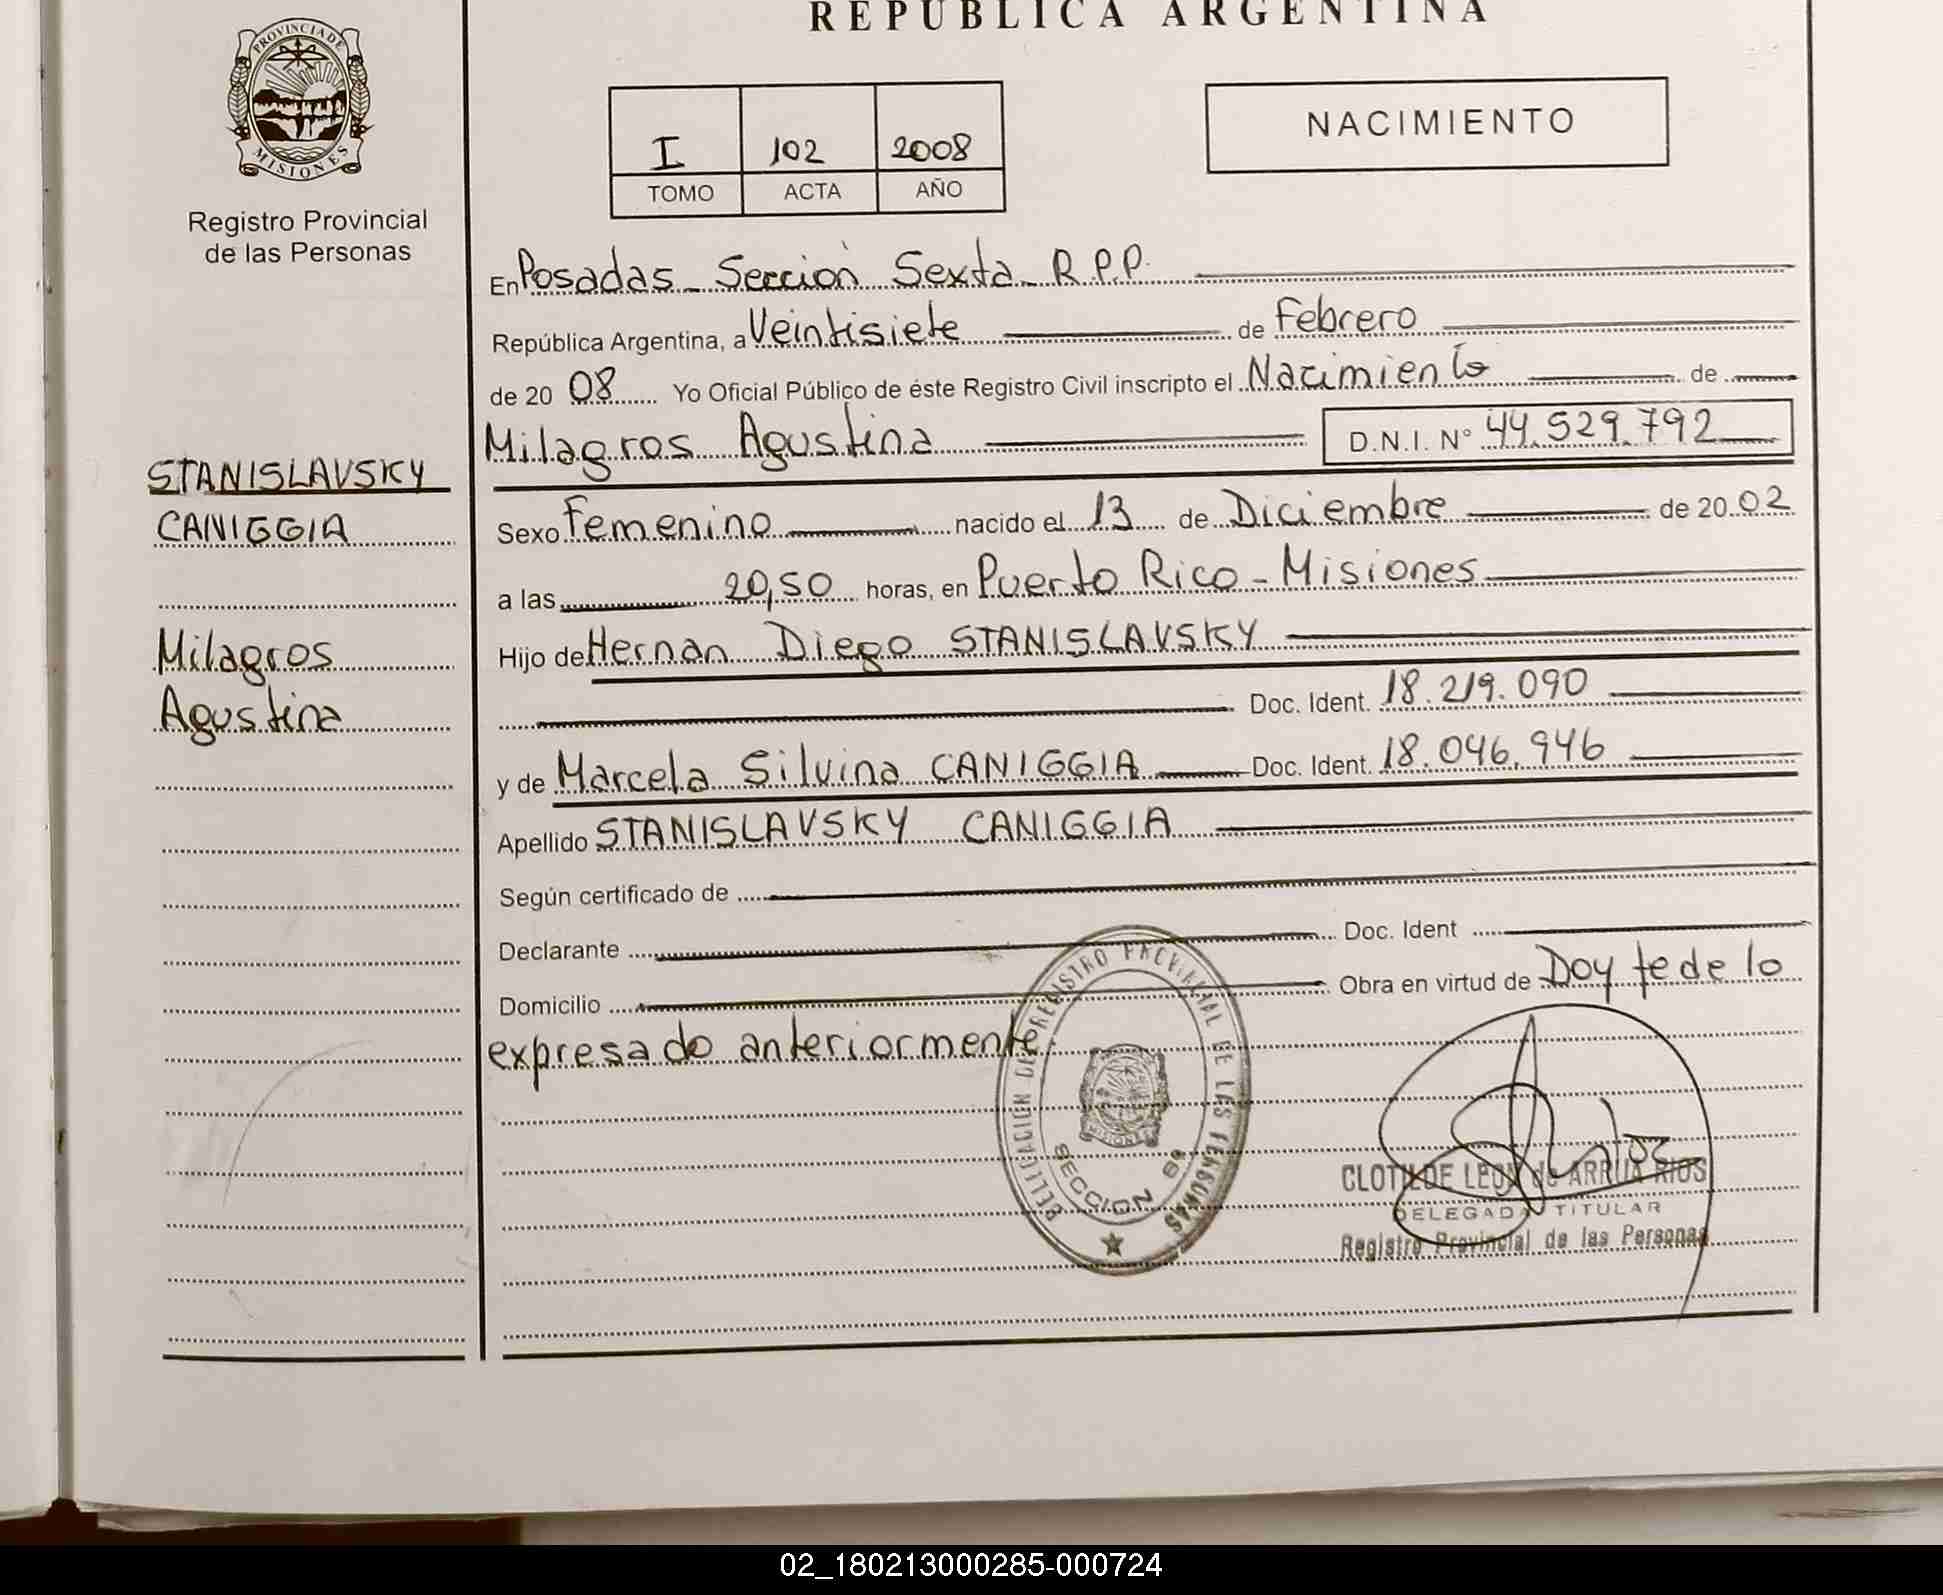 REPUBLICA ARGENTINA
PROVINCIA DE
MISIONES
Registro Provincial
de las Personas
I 102 2008
TOMO ACTA AÑO
NACIMIENTO
En Posadas - Sección Sexta - R.P.P.
República Argentina, a Veintisiete de Febrero
de 20 08 Yo Oficial Público de éste Registro Civil inscripto el Nacimiento de
Milagros Agustina D.N.I. N° 44.529.792
STANISLAVSKY
CANIGGIA
Milagros
Agustina
Sexo Femenino nacido el 13 de Diciembre de 20 02
a las 20,50 horas, en Puerto Rico - Misiones
Hijo de Hernan Diego STANISLAVSKY
Doc. Ident. 18.219.090
y de Marcela Silvina CANIGGIA Doc. Ident. 18.046.946
Apellido STANISLAVSKY CANIGGIA
Según certificado de
Declarante Doc. Ident
Domicilio Obra en virtud de Doy fe de lo
expresado anteriormente.
DELEGACION DEL REGISTRO PROVINCIAL DE LAS PERSONAS
MISIONES
SECCION 6a
CLOTILDE LEON de ARRUA RIOS
DELEGADA TITULAR
Registro Provincial de las Personas
02_180213000285-000724